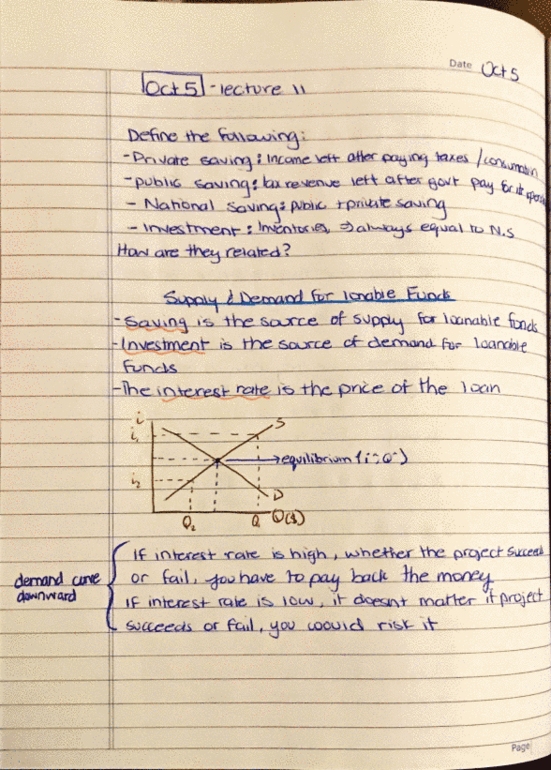 Date Oct 5
Oct 5 - lecture 11
Define the following:
- Private saving: Income left after paying taxes / consumption
- public saving: tax revenue left after govt pay for its
- National saving: public + private saving
- Investment: Inventories, ⇒ always equal to N.S
How are they related?
Supply & Demand for lonable Funds
- Saving is the source of supply for loanable fonds
- Investment is the source of demand for loanable
Funds
- The interest rate is the price of the loan
i
S
i₁
→ equilibrium
i₂
D
Q₂ Q Q($)
If interest rate is high, whether the project succeed
or fail, you have to pay back the money
demand curve
downward
If interest rate is low, it doesnt matter if project
succeeds or fail, you would risk it
Page